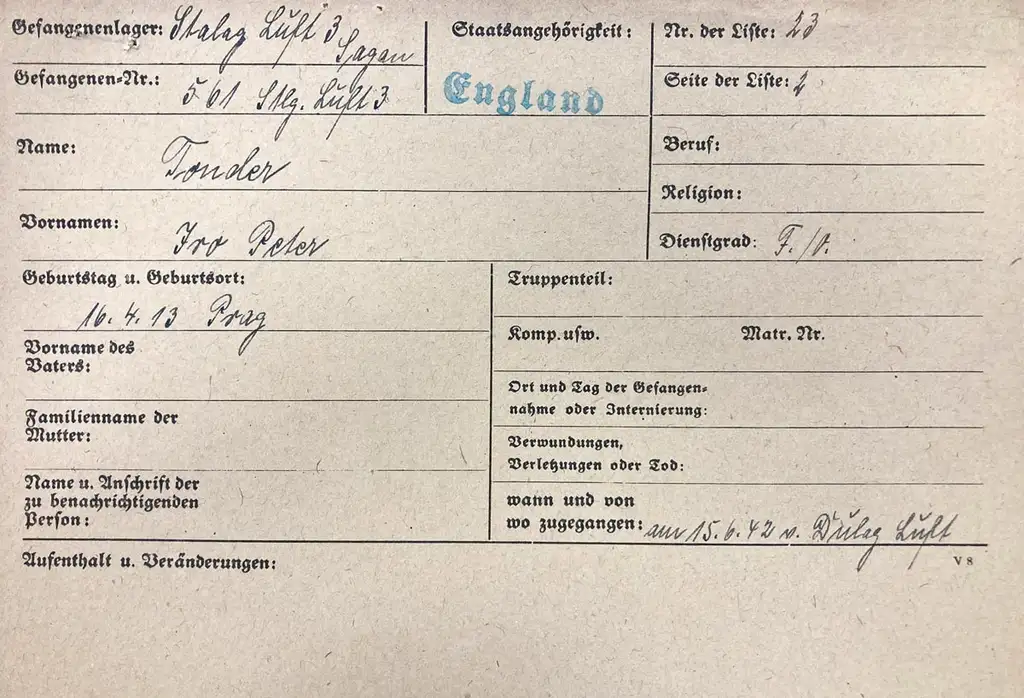 Gefangenenlager: Stalag Luft 3
Sagan
Staatsangehörigkeit:
England
Nr. der Liste: 23
Gefangenen-Nr.:
561 Stlg. Luft 3
Seite der Liste: 2
Name:
Tonder
Beruf:
Religion:
Vornamen:
Ivo Peter
Dienstgrad: F./O.
Geburtstag u. Geburtsort:
16. 4. 13 Prag
Truppenteil:
Komp. usw. Matr. Nr.
Vorname des
Vaters:
Ort und Tag der Gefangen-
nahme oder Internierung:
Familienname der
Mutter:
Verwundungen,
Verletzungen oder Tod:
Name u. Anschrift der
zu benachrichtigenden
Person:
wann und von
wo zugegangen: am 15.6.42 v. Dulag Luft
Aufenthalt u. Veränderungen:
V 8